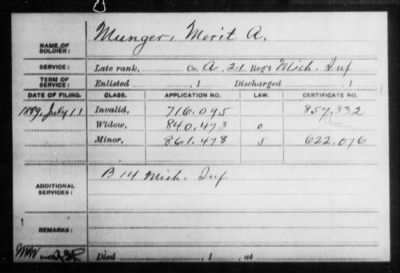 NAME OF SOLDIER: Munger, Merit A.
SERVICE: Late rank, Co. A, 21 Reg't Mich. Inf
TERM OF SERVICE: Enlisted , 1 Discharged , 1
DATE OF FILING. CLASS. APPLICATION NO. LAW. CERTIFICATE NO.
July 11 Invalid, 716.095 857.332
Widow, 840.473 o
Minor, 861.478 s 622.076
ADDITIONAL SERVICES: B 14 Mich. Inf
REMARKS:
Died , 1 , at